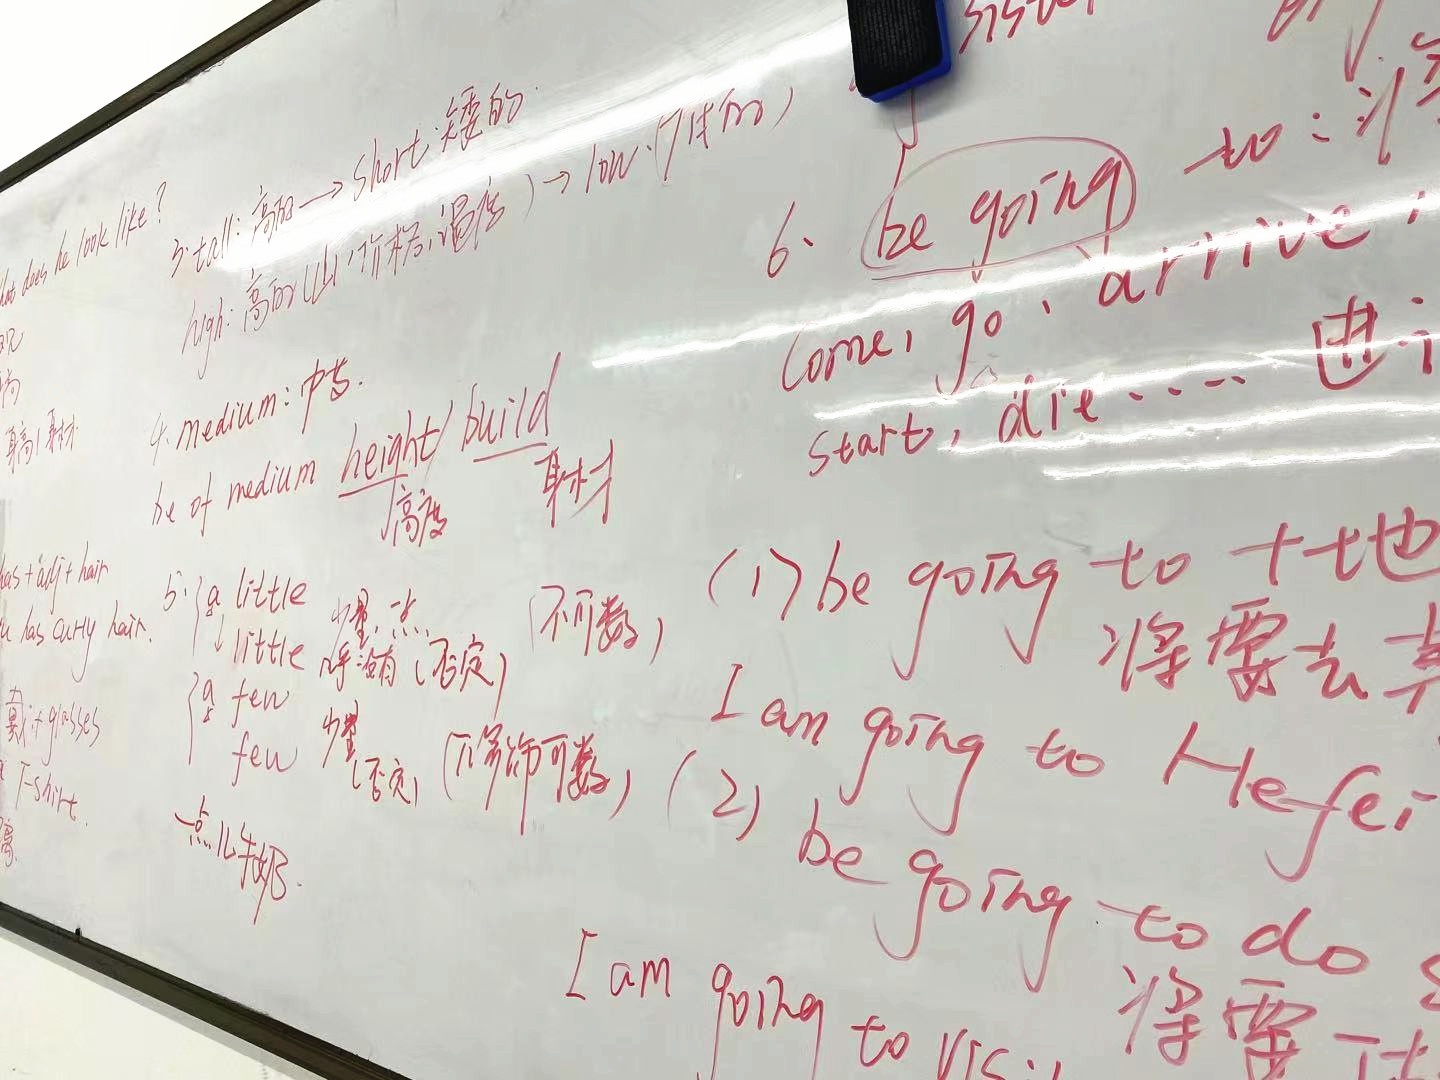 does he look like?
身高、身材
has + adj + hair
has curly hair.
戴: + glasses
T-shirt.
3. tall: 高的 → short: 矮的
high: 高的 (山、价格、温度) → low. (低的)
4. medium: 中等.
be of medium height / build
高度 身材
5. a little 少量,一点 (不可数)
little 几乎没有 (否定)
a few 少量
few (否定) (修饰可数)
一点儿牛奶.
sister
6. be going to: 将
come, go, arrive,
start, die ...... 进行
(1) be going to + 地
将要去某
I am going to Hefei
(2) be going to do
将要
I am going to visit